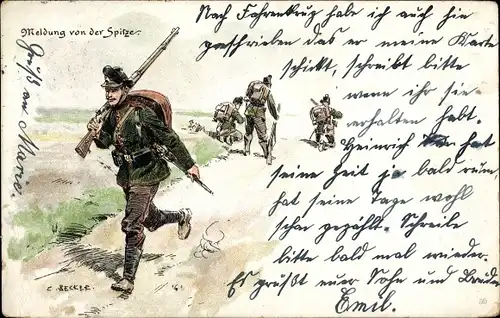 Meldung von der Spitze.
Gruß an Marie.
Nach Fahrenkrug habe ich auch hin
geschrieben das er meine Karte
schickt, schreibt bitte
wenn ihr sie
erhalten habt.
Heinrich hat
seine Zeit ja bald rum,
hat seine Tage wohl
schon gezählt. Schreibe
bitte bald mal wieder.
Es grüßt euer Sohn und Bruder
Emil.
C. BECKER